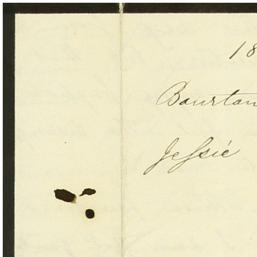 18
Bourton
Jessie